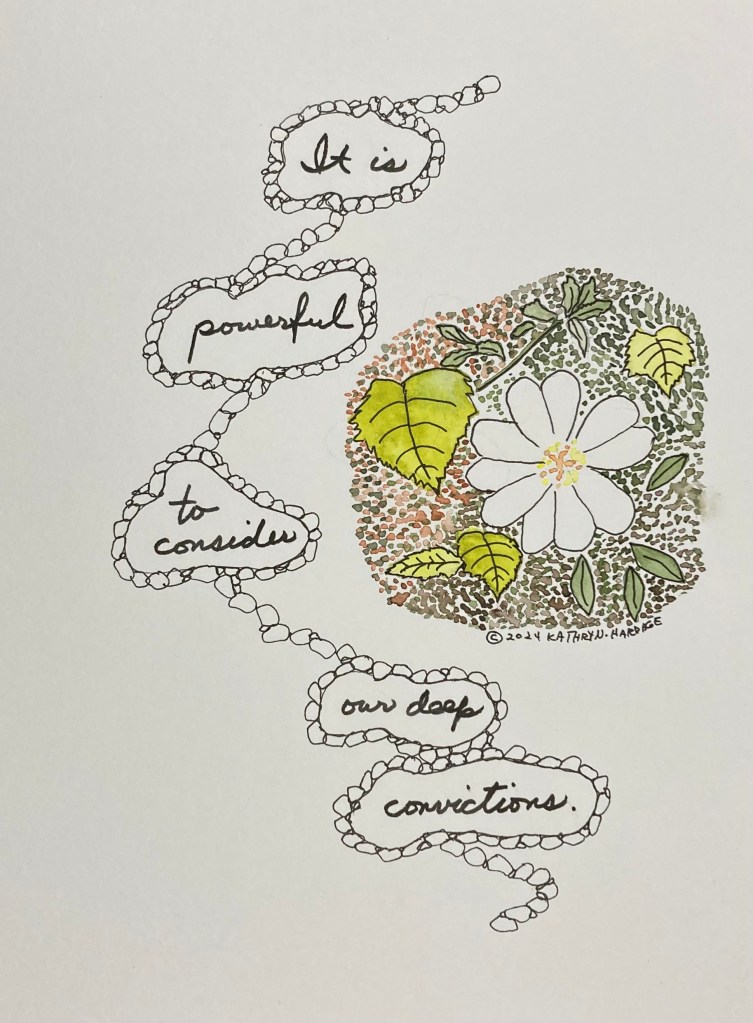 It is
powerful
to
consider
our deep
convictions.
© 2024 KATHRYN·HARDAGE